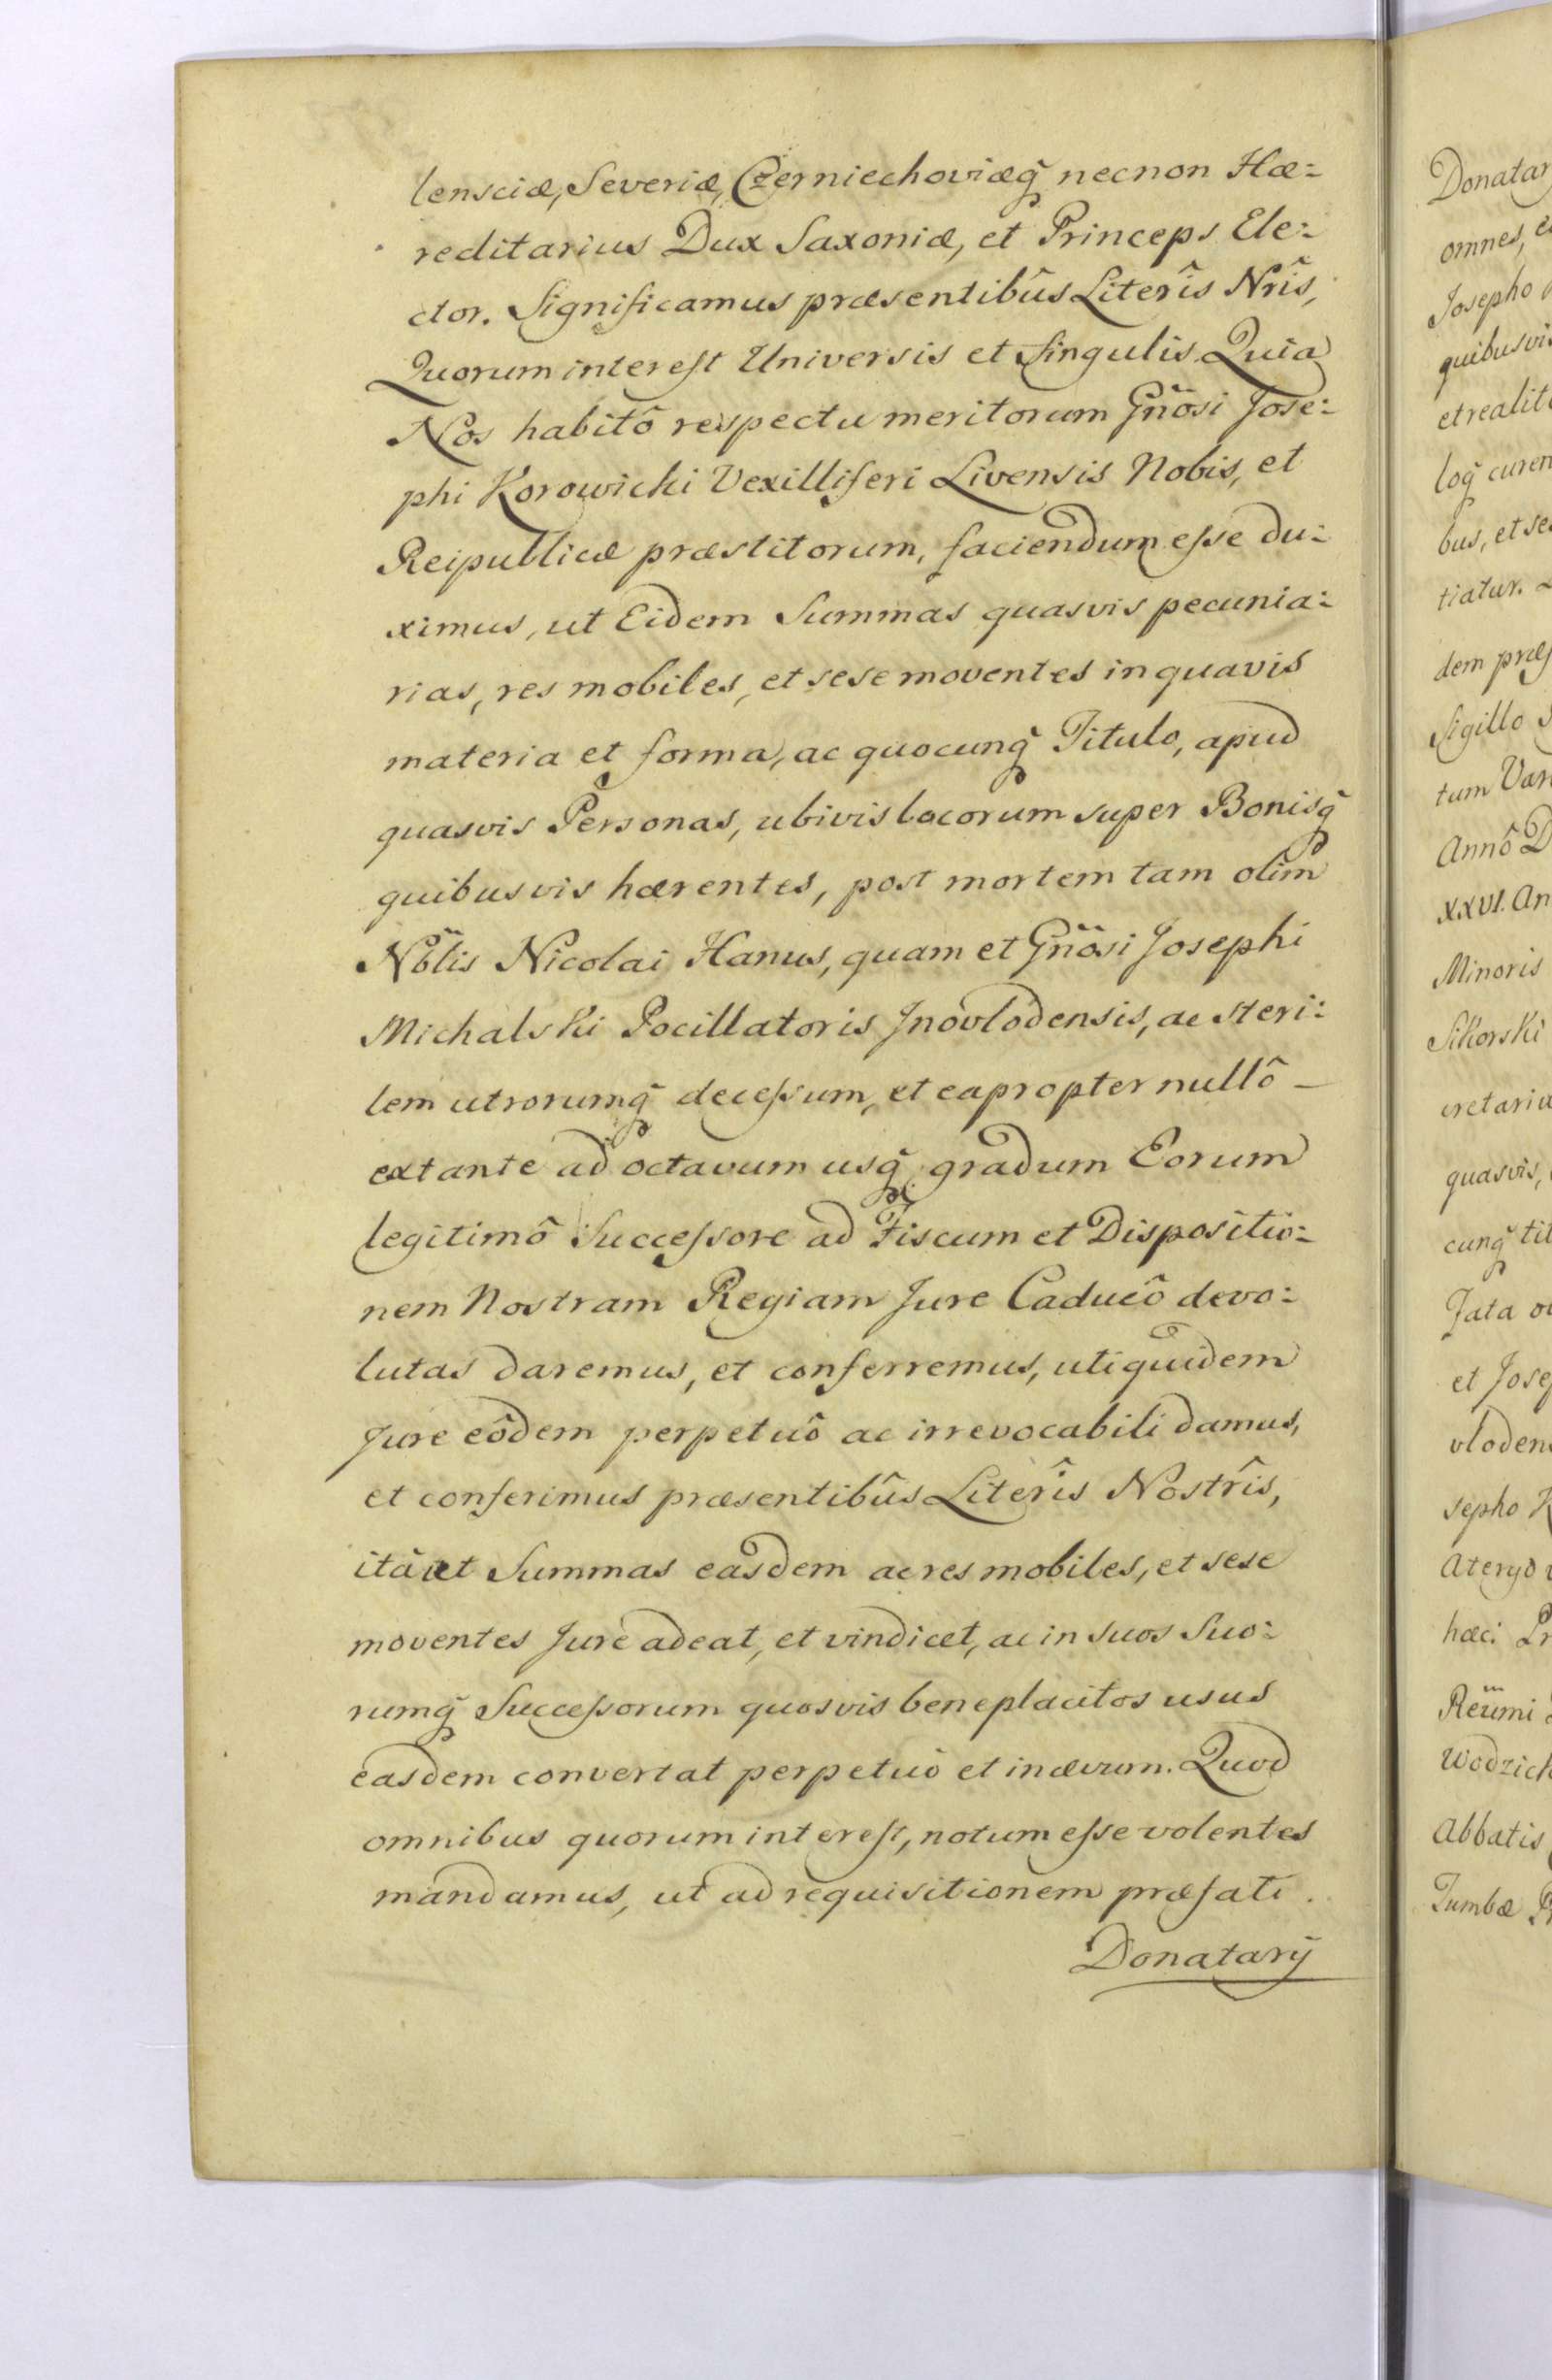 lensciæ, Severiæ, Czerniechoviæq̃ necnon Hæ:
reditarius Dux Saxoniæ, et Princeps Ele:
ctor. Significamus præsentibûs Literîs Nrîs,
Quorum interest Universis et Singulis Quia
Nos habitô respectu meritorum Gñosi Jose:
phi Korowicki Vexilliferi Livensis Nobis, et
Reipublicæ præstitorum, faciendum esse du:
ximus, ut Eidem Summas quasvis pecunia:
rias, res mobiles, et sese moventes in quavis
materia et forma, ac quocunq̃ Titulo, apud
quasvis Personas, ubivis locorum super Bonisq̃
quibusvis hærentes, post mortem tam olim
Nõlis Nicolai Hanus, quam et Gñosi Josephi
Michalski Pocillatoris Jnovlodensis, ac steri:
lem utrorumq̃ decessum, et eapropter nullô
extante ad octavum usq̃ gradum Eorum
legitimô Successore ad Fiscum et Dispositio:
nem Nostram Regiam Jure Caducô devo:
lutas daremus, et conferremus, uti quidem
Jure eôdem perpetuô ac irrevocabili damus,
et conferimus præsentibûs Literîs Nostrîs,
itâ ut Summas easdem ac res mobiles, et sese
moventes Jure adeat, et vindicet, ac in suos Suo:
rumq̃ Successorum quosvis beneplacitos usus
easdem convertat perpetuò et in ævum. Quod
omnibus quorum interest, notum esse volentes
mandamus, ut ad requisitionem præfati
Donatarÿ
Donatar
omnes,
Josepho
quibusvis
et realit
loq̃ curen
bus, et se
tiatur.
dem præs
Sigillo
tum Var
Annô D
XXVI. An
Minoris
Sikorski
cretariu
quasvis,
cunq̃ tit
Fata
et Jose
vloden
sepho K
Atergo
hæc: Pr
Reũmi
Wodzick
Abbatis
Tumbæ